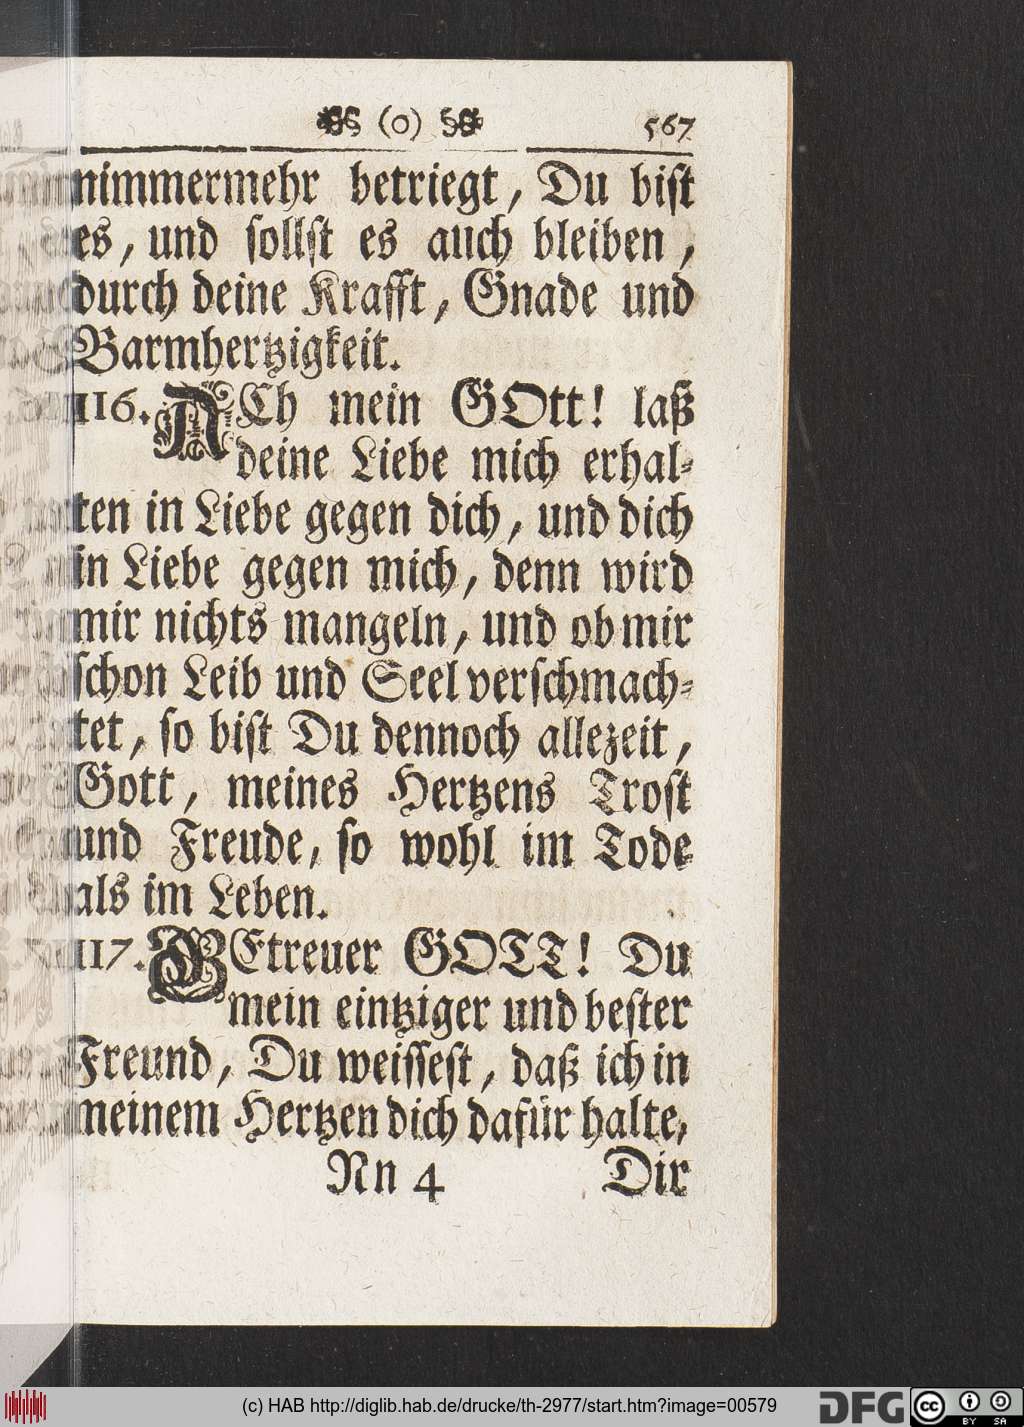 (0) 567
nimmermehr betriegt, Du bist
es, und sollst es auch bleiben,
durch deine Krafft, Gnade und
Barmhertzigkeit.
116. ACh mein GOtt! laß
deine Liebe mich erhal-
ten in Liebe gegen dich, und dich
in Liebe gegen mich, denn wird
mir nichts mangeln, und ob mir
schon Leib und Seel verschmach-
tet, so bist Du dennoch allezeit,
Gott, meines Hertzens Trost
und Freude, so wohl im Tode
als im Leben.
117. GEtreuer GOTT! Du
mein eintziger und bester
Freund, Du weissest, daß ich in
meinem Hertzen dich dafür halte,
Nn 4 Dir
(c) HAB http://diglib.hab.de/drucke/th-2977/start.htm?image=00579
DFG
cc BY SA